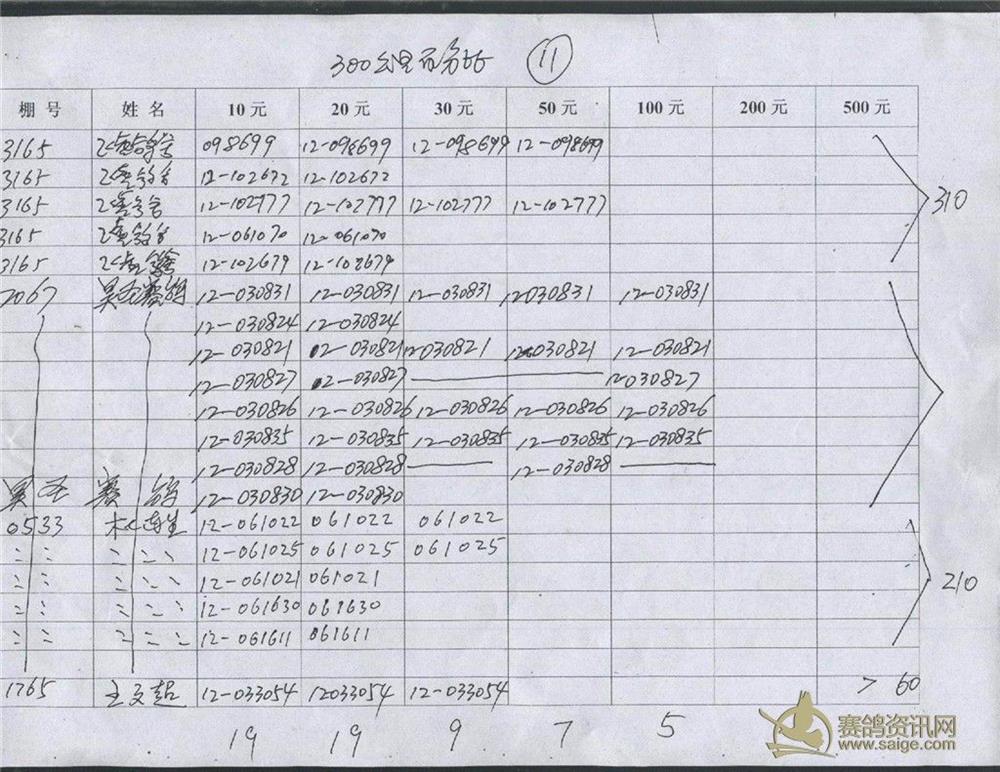 300公里百分比 11
棚号 姓名 10元 20元 30元 50元 100元 200元 500元
3165 098699 12-098699 12-098699 12-098699
3165 12-102672 12-102672
3165 12-102777 12-102777 12-102777 12-102777 310
3165 12-061070 12-061070
3165 12-102679 12-102679
2067 12-030831 12-030831 12-030831 12-030831 12-030831
12-030824 12-030824
12-030821 12-030821 12030821 12-030821 12-030821
12-030827 12-030827 12030827
12-030826 12-030826 12-030826 12-030826 12-030826
12-030835 12-030835 12-030835 12-030835 12-030835
12-030828 12-030828 12-030828
12-030830 12-030830
0533 12-061022 061022 061022
12-061025 061025 061025
12-061021 061021 210
12-061630 061630
12-061611 061611
1765 12-033054 12033054 12-033054 > 60
19 19 9 7 5
赛鸽资讯网
www.saige.com